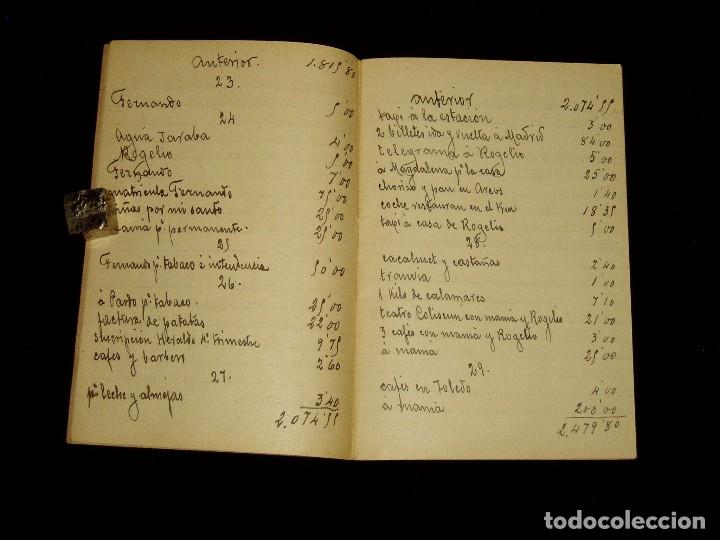 anterior. 1.815'80
23.
Fernando 5'00
24
Agua Jaraba 4'00
Rogelio 5'00
Fernando 7'00
matricula Fernando 75'00
niñas por mi santo 25'00
mamá pª permanente. 25'00
25
Fernando pª tabaco é intendencia 50'00
26.
á Pardo pª tabaco. 25'00
factura de patatas 22'00
suscripcion Heraldo 4º trimestre 9'75
cafes y barbero 2'60
27.
pª leche y almejas 3'40
2.074'55
anterior 2.074'55
taxi á la estación 3'00
2 billetes ida y vuelta á Madrid 84'00
telegrama á Rogelio 5'00
á Magdalena pª la casa 25'00
chorizo y pan en Arcos 1'40
coche restauran en el tren 18'35
taxi á casa de Rogelio 5'00
28.
cacahuet y castañas 2'40
tranvia 1'00
1 kilo de calamares 7'10
teatro Coliseum con mamá y Rogelio 21'00
3 cafés con mamá y Rogelio 3'00
á mamá 25'00
29.
cafés en Toledo 4'00
á mamá 200'00
2.479'80
todocoleccion